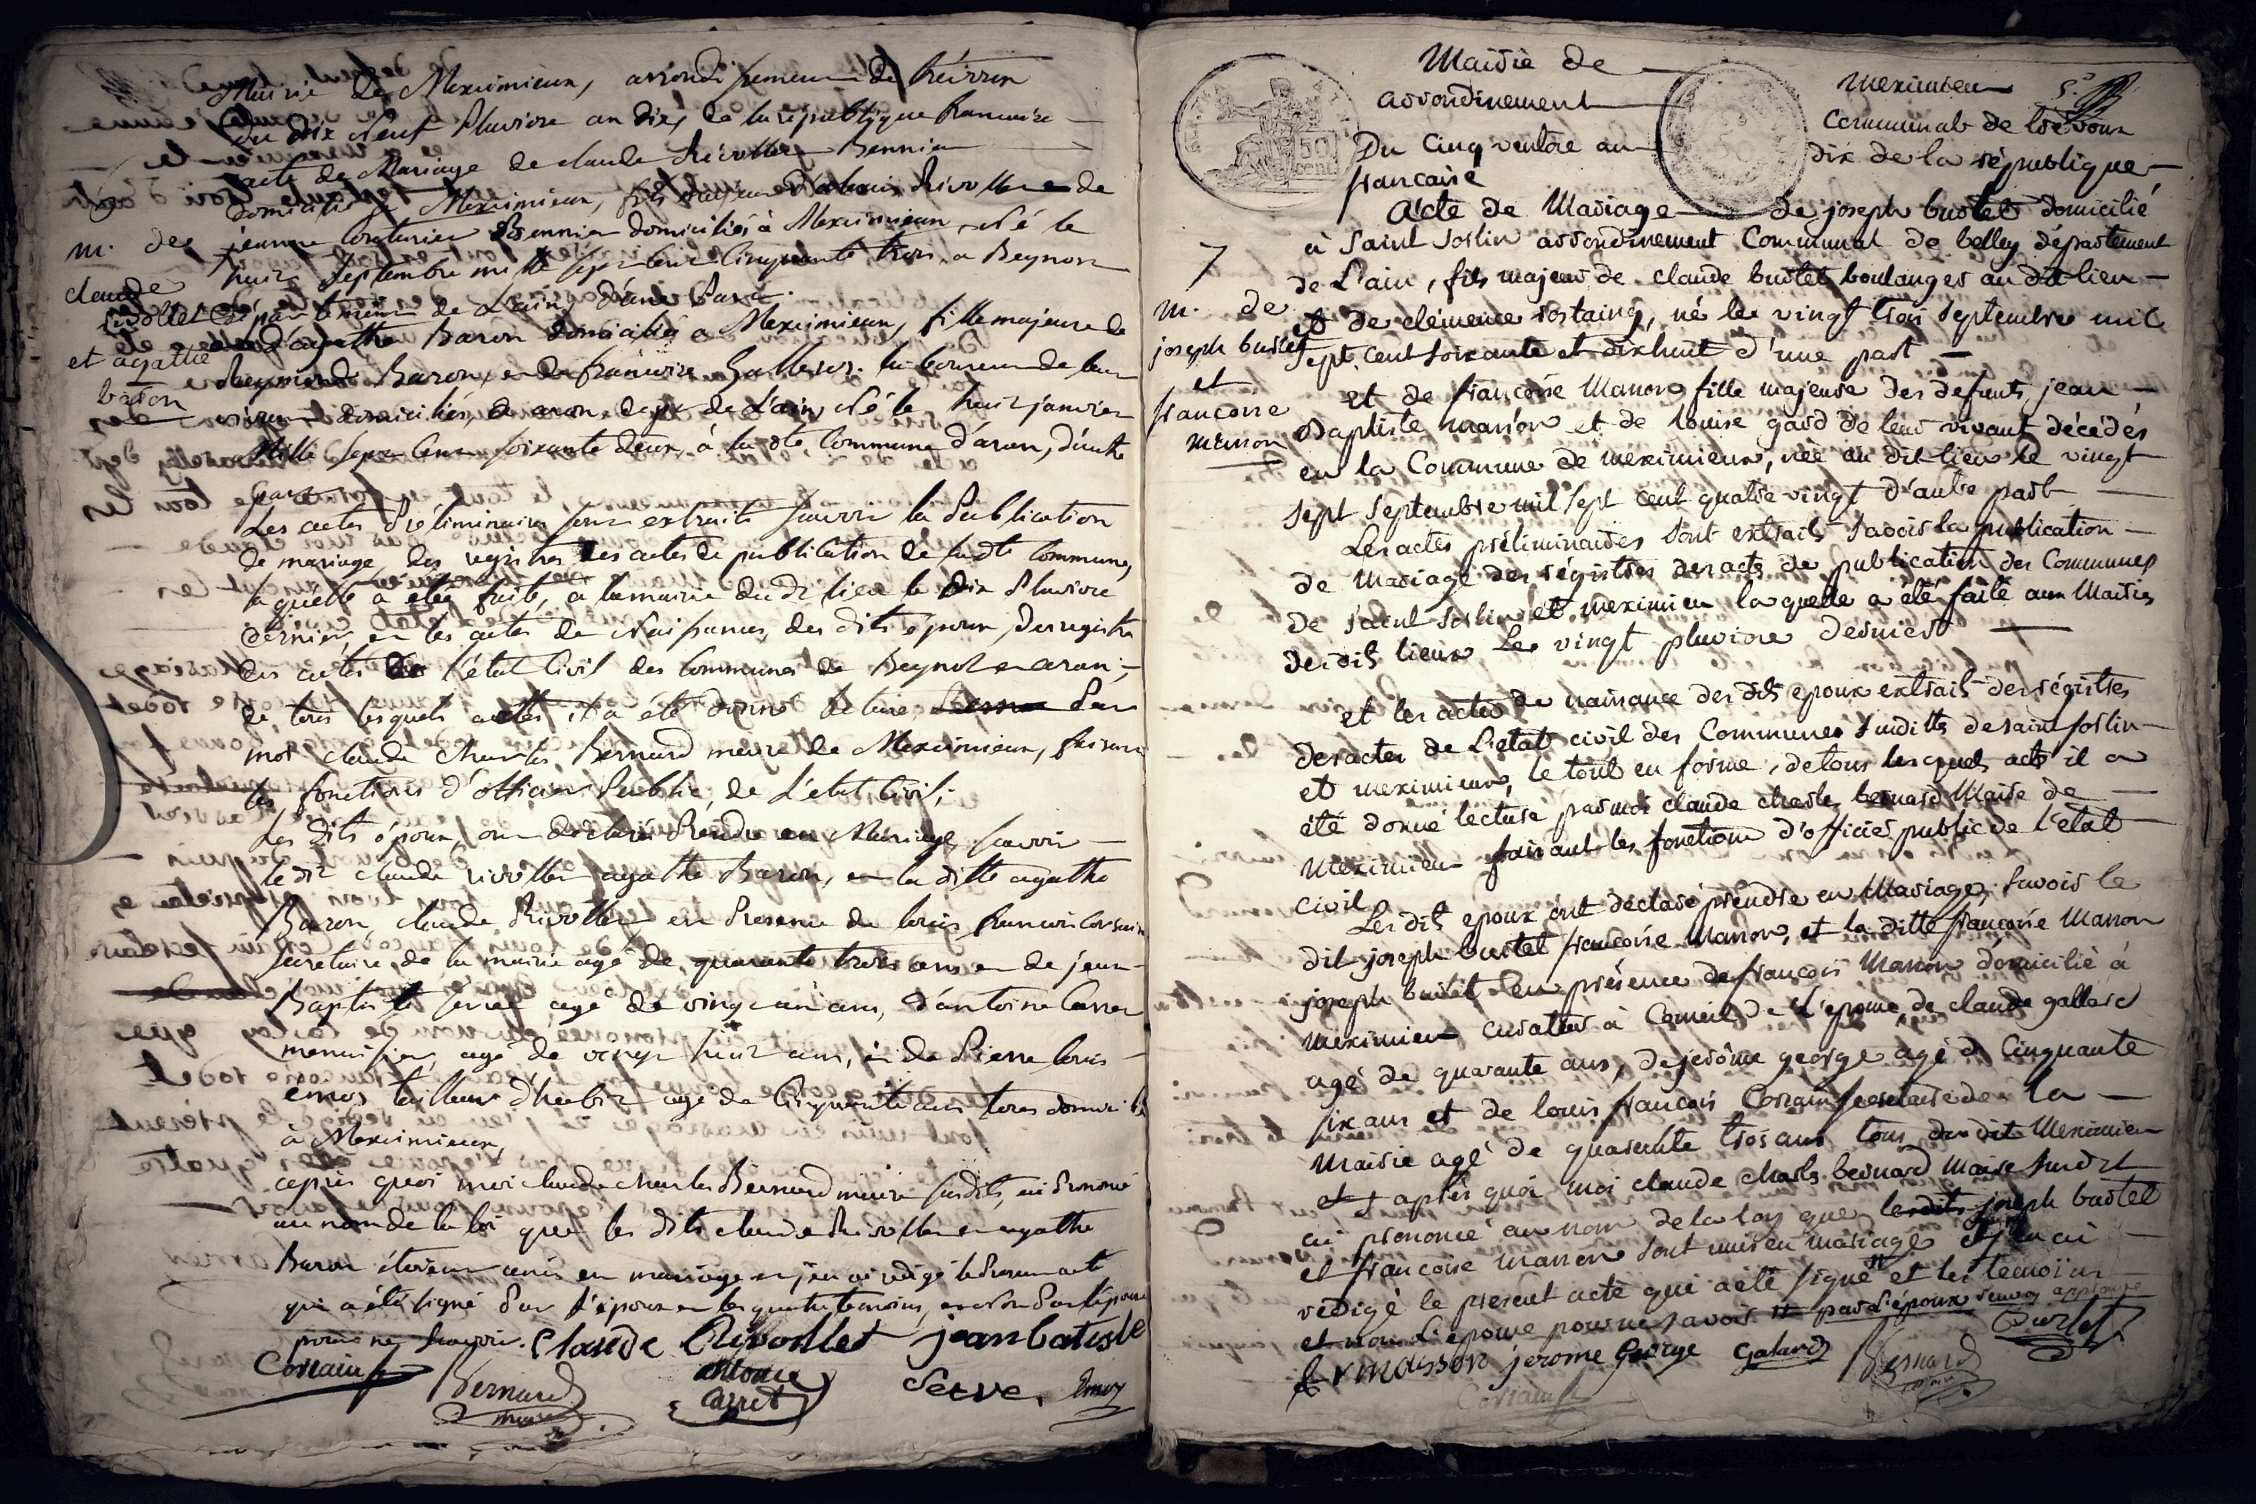 Mairie de Meximieux, arrondissement de Trévoux
du dix neuf Pluviose an dix, de la république francaise
acte de Mariage de claude Rivollet Bennier
domicilié à Meximieux, fils majeur d'alexis Rivollet de
m. de jeanne Couturier Bennier domiciliés à Meximieux, Né le
claude huit Septembre mille sept cent Cinquante trois, a Beynost
Rivollet Département de L'ain, d'une Part.
et agathe d'agathe Baron domiciliée a Meximieux, fille majeure de
baron Reymond Baron, et de francoise laboureur de leur
vivant domiciliés, a aran, dept de L'ain, Né le huit janvier
Mille Sept Cent soixante deux, à la dte Commune d'aran, d'autre
part
Les actes Préliminaires sont extraits savoir la Publication
de mariage, des registres des actes de publication de ladte Commune,
laquelle a été faite, à la mairie dudt lieu le dix Pluviose
dernier, et les actes de Naissances, des dits époux, des registres
des actes de l'état Civil des Communes de Beynost et aran,
de tous lesquels actes il a été donné lecture Par
moi claude charles Bernard maire de Meximieux, faisant
les fonctions d'officier Public, de L'état Civil,
Les dits époux, ont déclaré Prendre en Mariage, savoir
le dit claude rivollet agathe Baron, et la ditte agathe
Baron, claude Rivollet en Presence de louis francois Corsain
secretaire de la mairie agé de quarante trois ans et de jean
Baptiste serve agé de vingt un ans, d'antoine Carret
menuisier, agé de vingt huit ans, et de Pierre louis
émoz tailleur d'habit agé de Cinquante ans tous domiciliés
à Meximieux,
après quoi moi claude charles Bernard maire susdit, ai Prononcé
au nom de la loi que les dits claude Rivollet et agathe
Baron étoient unis en mariage et j'en ai rédigé le Present acte
qui a été signé Par l'époux et les quatre temoins, et Non Par l'épouse
pour ne savoir. Claude Rivollet jean batiste
Corsain Bernard maire antoine Carret Serve. Emoz
Mairie de Meximieu 5.e
arrondissement Communal de Trévoux
Du Cinq ventose an dix de la république
francaise
Acte de Mariage de joseph burtet domicilié
7 à Saint Sorlin arrondissement Communal de belley département
de L'ain, fils majeur de claude burtet boulanger au dit lieu
m. de et de clémence rostaing, né le vingt trois Septembre mil
joseph burtet Sept cent Soixante et dix huit d'une part
et et de francoise Manon fille majeure des defunts jean
francoise Baptiste manon et de louise gard de leur vivant décédés
menon en la Commune de meximieux, née au dit lieu le vingt
Sept Septembre mil Sept cent quatre vingt d'autre part
Les actes préliminaires sont extraits Savoir la publication
de Mariage des régistres des acts de publication des Communes
de saint Sorlin et meximieu laquelle a été faite aux Mairies
desdits lieux Le vingt pluviose dernier
et les actes de naissance des dits epoux extraits des régistres
des actes de L'etat civil des Communes Susdittes de saint sorlin
et meximieux, le tout en forme, de tous lesquels acts il a
été donné lecture par moi claude charles bernard Maire de
Meximieu faisant les fonctions d'officier public de L'etat
civil
Les dits epoux ont declaré prendre en Mariage, Savoir le
dit joseph burtet francoise Manon, et la ditte francoise Manon
joseph burtet En présence de francois Manon domicilié à
Meximieu curateur à Conseil de L'epouse, de claude galland
agé de quarante ans, de jerôme george agé de Cinquante
six ans et de louis francois Corsain secretaire de la
Mairie agé de quarante trois ans tous dudit Meximieu
et après quoi moi claude charles bernard Maire Susdit
ai prononcé au nom de la loy que lesdits joseph burtet
et francoise manon sont unis en mariage et j'en ai
redigé le present acte qui a été signé et les temoins
et non L'epouse pour ne savoir par L'époux renvoy approuvé
masson jerome George Galand Bernard Burtet
Corsain